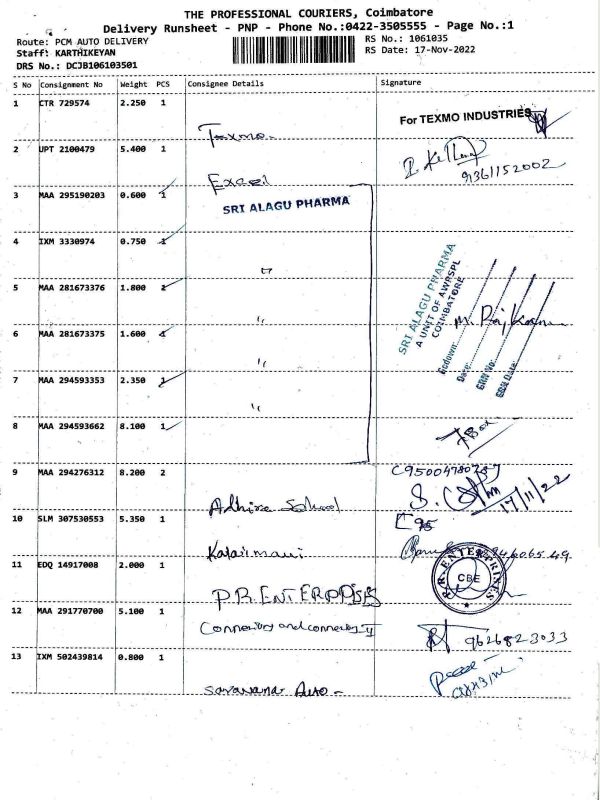 THE PROFESSIONAL COURIERS, Coimbatore
Delivery Runsheet - PNP - Phone No.:0422-3505555 - Page No.:1
Route: PCM AUTO DELIVERY RS No.: 1061035
Staff: KARTHIKEYAN RS Date: 17-Nov-2022
DRS No.: DCJB106103501
S No Consignment No Weight PCS Consignee Details Signature
1 CTR 729574 2.250 1 Texmo For TEXMO INDUSTRIES
2 UPT 2100479 5.400 1 Excel 9361152002
3 MAA 295190203 0.600 1 SRI ALAGU PHARMA
4 IXM 3330974 0.750 1 "
5 MAA 281673376 1.800 "
6 MAA 281673375 1.600 1 "
7 MAA 294593353 2.350 "
8 MAA 294593662 8.100 1
SRI ALAGU PHARMA
A UNIT OF AWPSPL
COIMBATORE
Date:
GRN No:
GRN Date:
M. Raj Kumar
1 Box
9 MAA 294276312 8.200 2 School
17/11/22
10 SLM 307530553 5.350 1
11 EDQ 14917008 2.000 1 P.R. ENTERPRISES
R.R. ENTERPRISES
CBE
12 MAA 291770700 5.100 1 9626823033
13 IXM 502439814 0.800 1 Saravana Auto